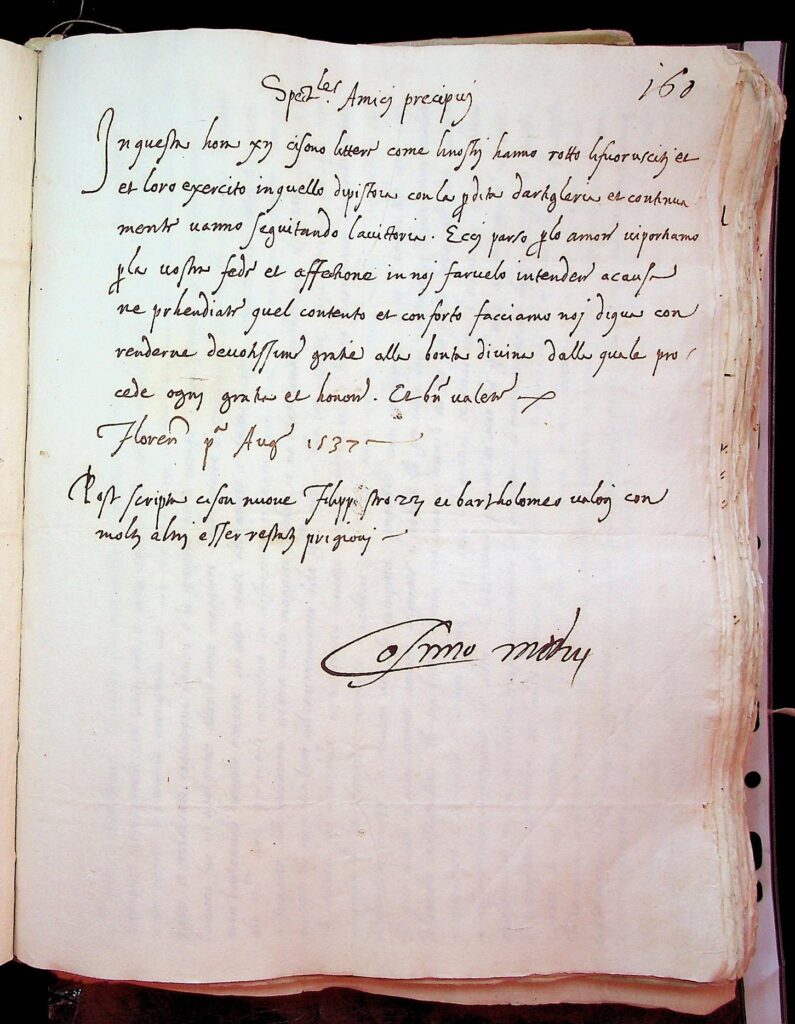 160
Spect.les Amici precipui
In questa hora xij ci sono littere come li nostri hanno rotto li fuorusciti et
et loro exercito in quello di pistoia con la pdita dartigleria et continua
mente vanno seguitando la vittoria. Ecci parso plo amore vi portiamo
pla vostra fede et affectione in noi farvelo intendere a causa
ne prhendiate quel contento et conforto facciamo noi di qua con
renderne devotissime gratie alla bonta divina dalla quale pro/
cede ogni gratia et honore. Et bn valete
Floren pa Aug 1537
Post scripta ci son nuove Filippo strozzi et bartholomeo valori con
molti altri esser restati prigioni
Cosimo medici